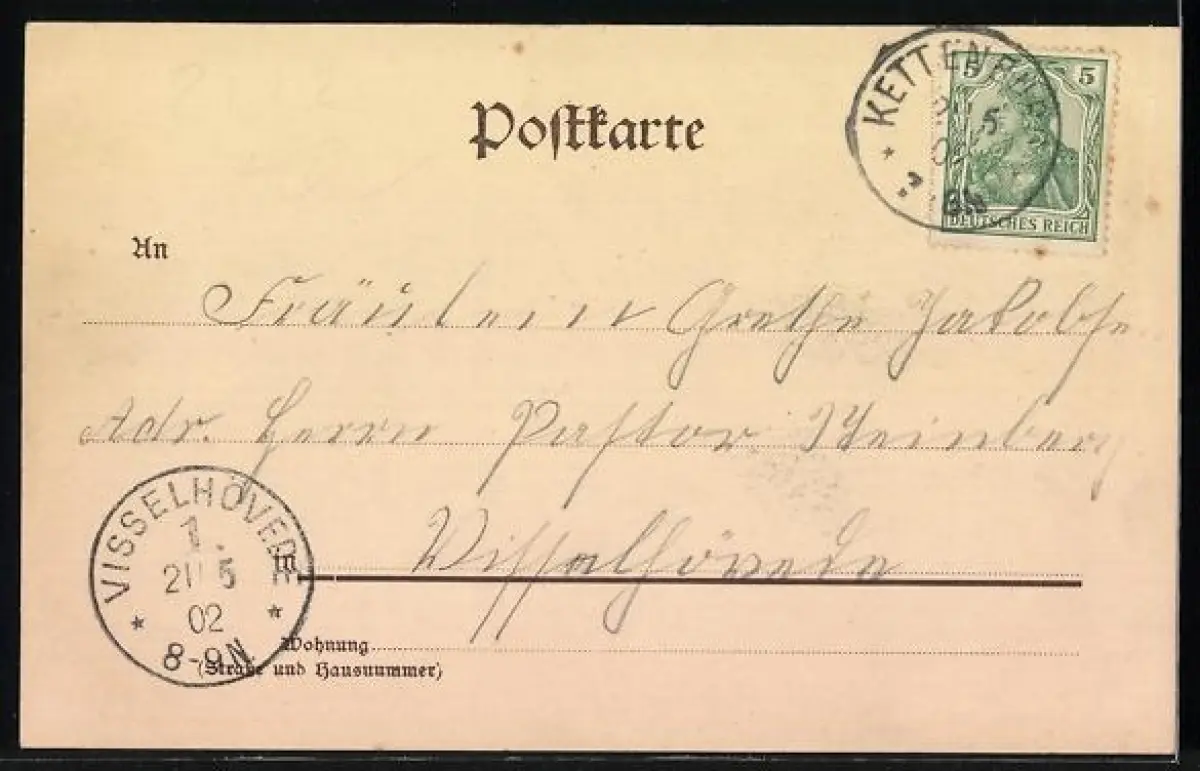 Postkarte
KETTENBURG
5
5
02
DEUTSCHES REICH
An
Fräulein Grethe Jakobse
Adr. Herrn Pastor Steinberg
Visselhövede
in
VISSELHÖVEDE
1.
21 5
02
8-9N.
Wohnung
(Straße und Hausnummer)